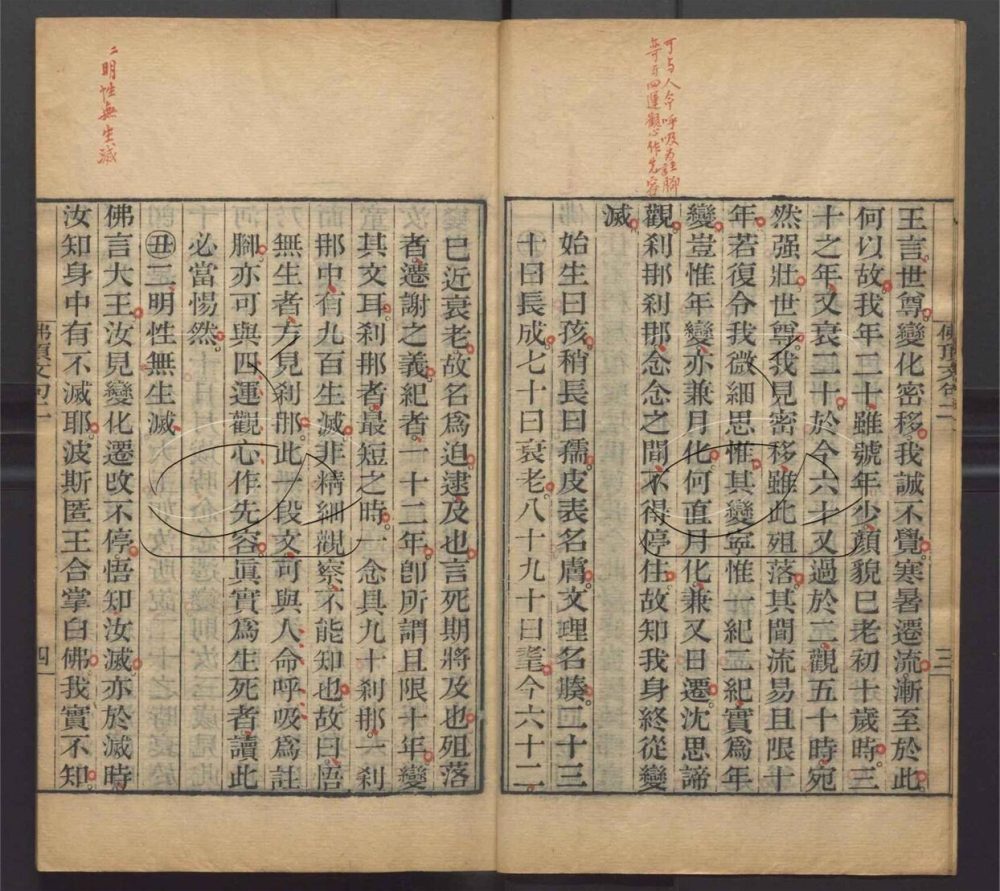 可与人命呼吸为註脚
亦可与四運觀心作先容
王言。世尊。變化密移。我誠不覺。寒暑遷流。漸至於此。
何以故。我年二十。雖號年少。顏貌已老初十歲時。三
十之年。又衰二十。於今六十又過於二。觀五十時。宛
然强壯。世尊。我見密移。雖此殂落。其間流易且限十
年。若復令我微細思惟。其變寧惟一紀二紀。實爲年
變。豈惟年變。亦兼月化。何直月化。兼又日遷。沈思諦
觀。刹那刹那。念念之間。不得停住。故知我身終從變
滅。
始生曰孩。稍長曰孺。皮表名膚。文理名腠。二十三
十曰長成。七十曰衰老。八十九十曰耄。今六十二。
佛頂文句二
三
二明性無生滅
變已近衰老。故名爲迫。逮及也。言死期將及也。殂落
者。遷謝之義。紀者。一十二年。卽所謂且限十年。變
其文耳。刹那者。最短之時。一念具九十刹那。一刹
那中。有九百生滅。非精細觀察。不能知也。故曰。悟
無生者。方見刹那。此一段文。可與人命呼吸爲註
脚。亦可與四運觀心作先容。眞實爲生死者。讀此
必當惕然。
丑二明性無生滅
佛言大王。汝見變化遷改不停。悟知汝滅。亦於滅時
汝知身中有不滅耶。波斯匿王合掌白佛。我實不知。
佛頂文句二
四